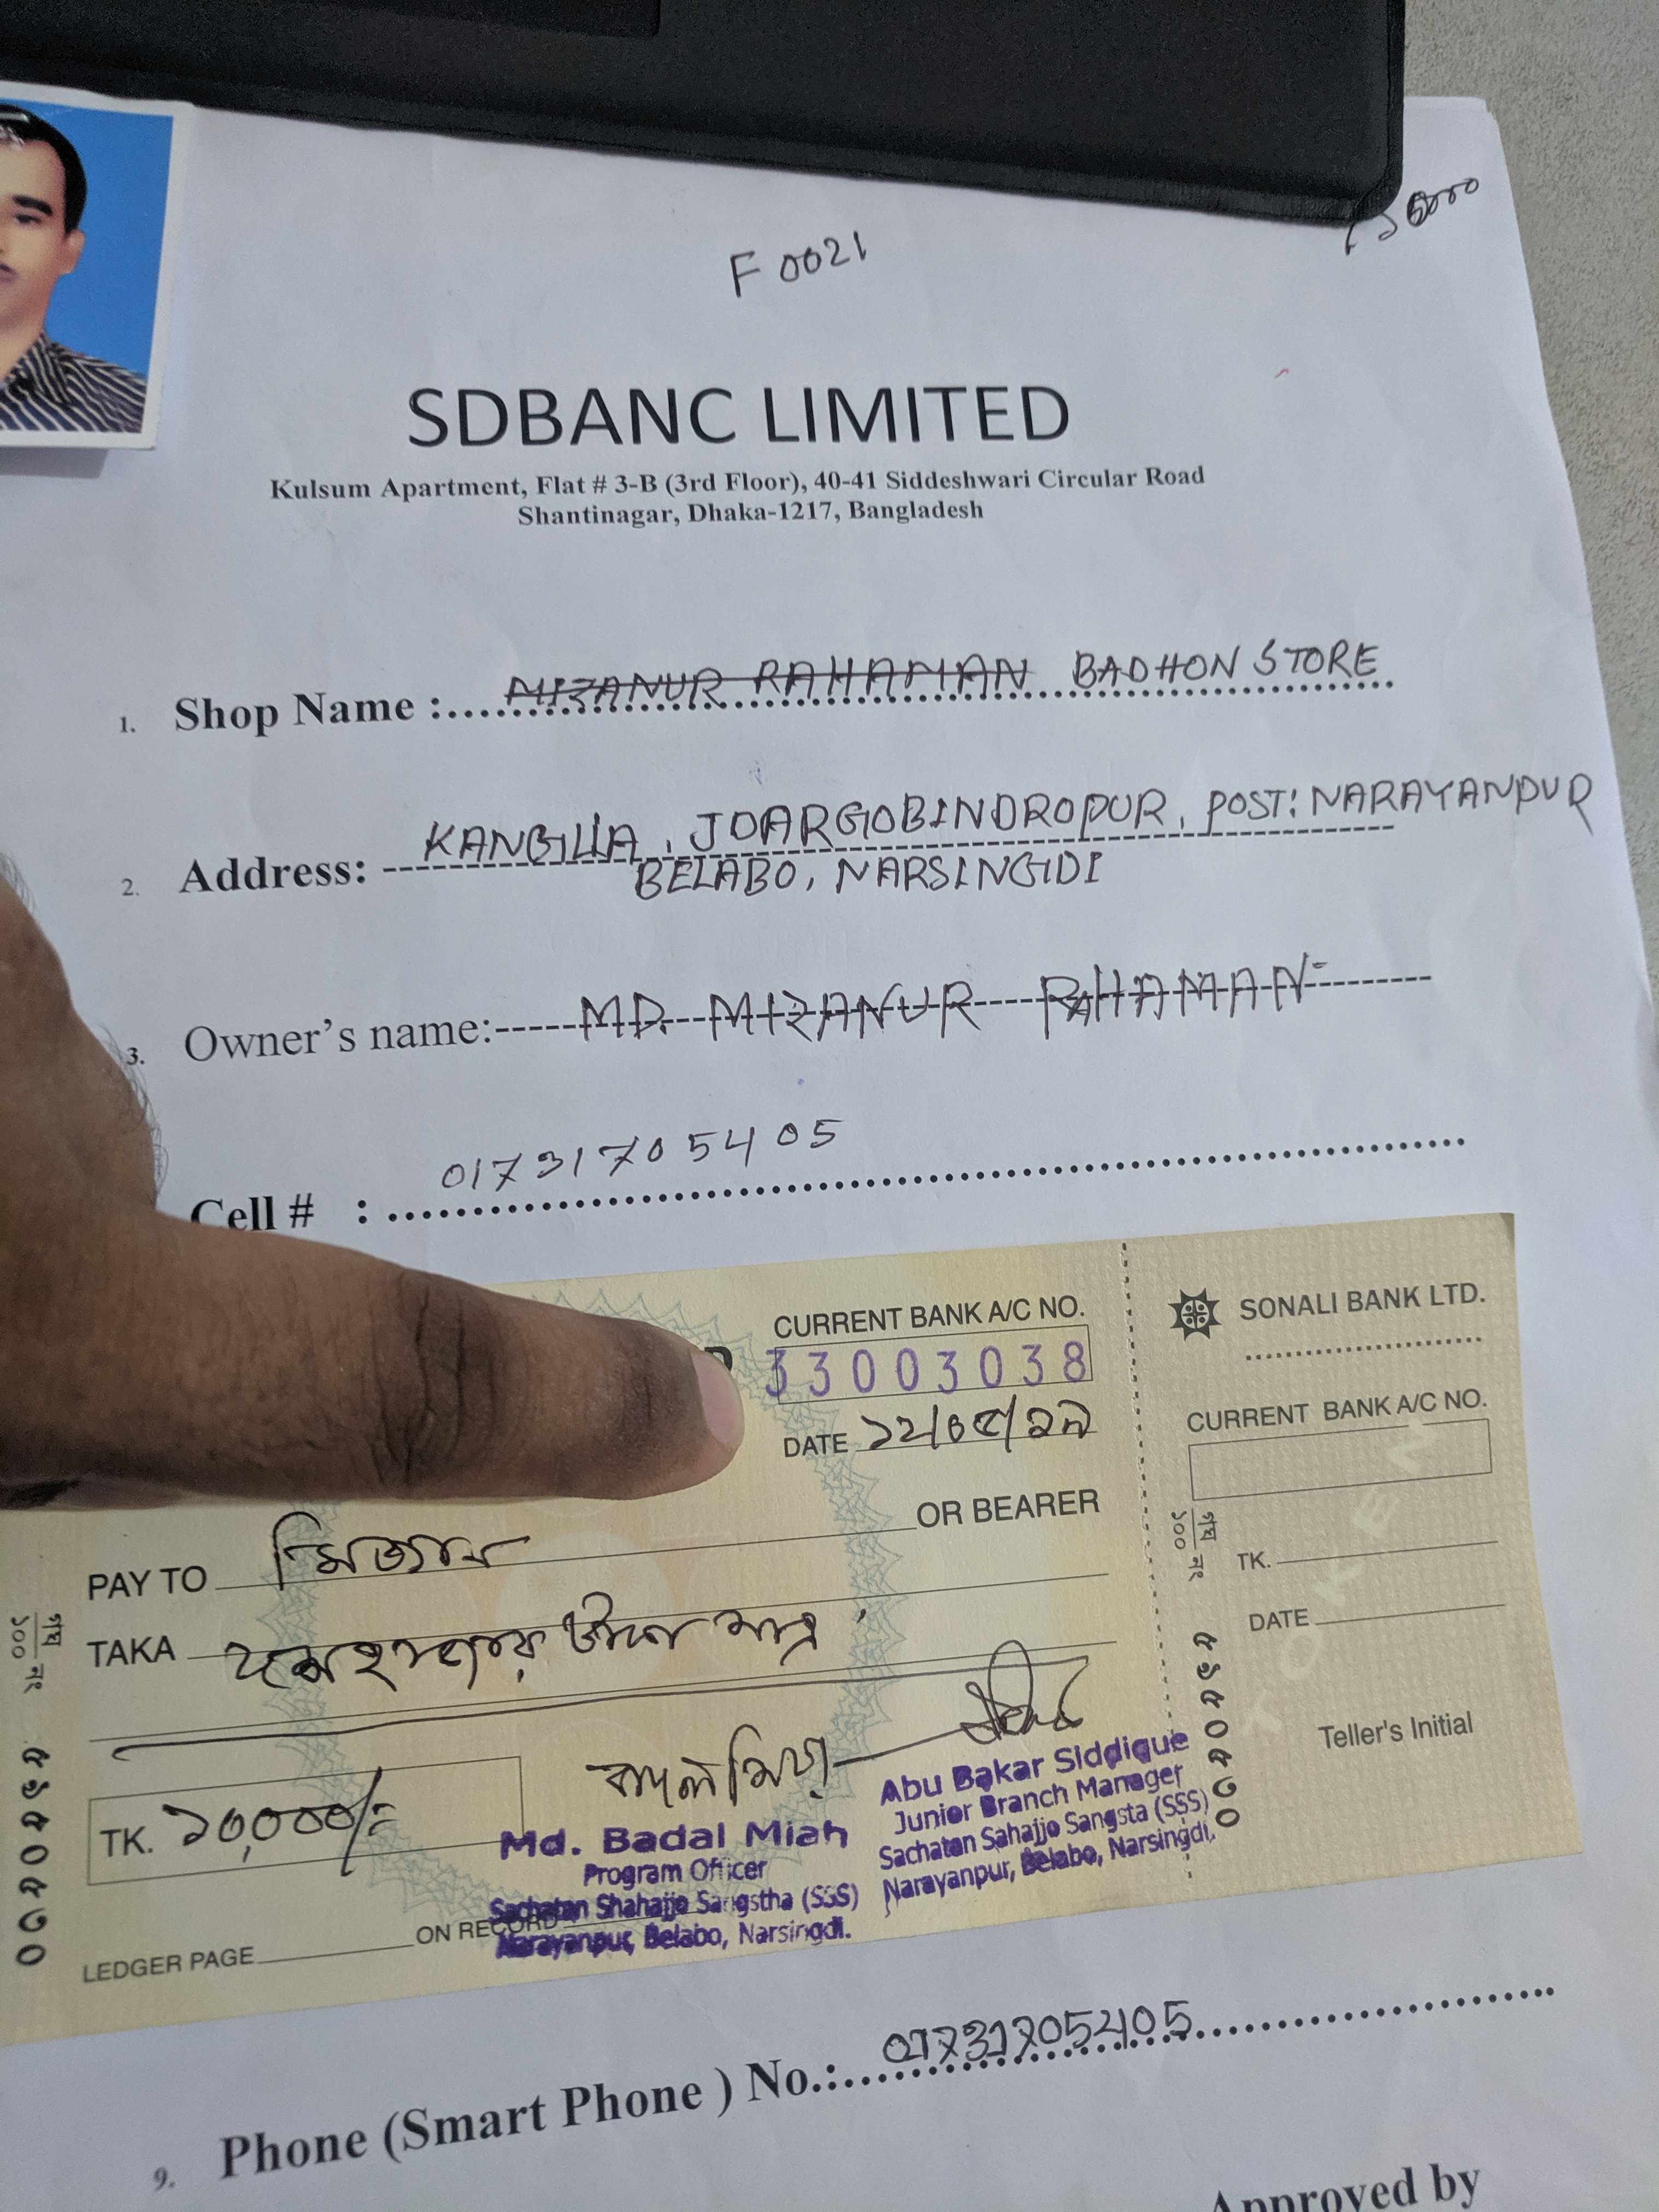 F 0021
SDBANC LIMITED
Kulsum Apartment, Flat # 3-B (3rd Floor), 40-41 Siddeshwari Circular Road
Shantinagar, Dhaka-1217, Bangladesh
1. Shop Name : MIZANUR RAHAMAN BADHON STORE
2. Address: KANGILLA, JOARGOBINDROPUR, POST: NARAYANPUR
BELABO, NARSINGIDI
3. Owner's name: MD. MIZANUR RAHAMAN
Cell # : 01731705405
CURRENT BANK A/C NO.
33003038
DATE ১২/০৫/২১
OR BEARER
PAY TO মিজান
TAKA দশ হাজার টাকা মাত্র
TK. ১০,০০০/=
বাদল মিয়া
Md. Badal Miah
Program Officer
Sachatan Shahajjo Sangstha (SSS)
Narayanpur, Belabo, Narsingdi.
Abu Bakar Siddique
Junior Branch Manager
Sachatan Sahajjo Sangsta (SSS)
Narayanpur, Belabo, Narsingdi.
LEDGER PAGE
ON RECORD
SONALI BANK LTD.
CURRENT BANK A/C NO.
TK.
DATE
TOKEN
Teller's Initial
9. Phone (Smart Phone ) No.: 01731705405
Approved by